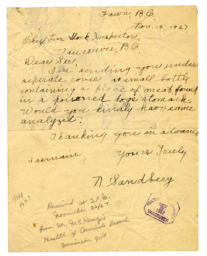 Fawn, B.C.
Nov. 18, 1927
Stock Inspector,
Vancouver, B.C.
Dear Sir,
I am sending you under
seperate cover a small bottle
containing a piece of meat found
in a poisoned dogs stomach.
Would you kindly have same
analyzed.
Thanking you in advance
Yours Truly
N. Sandberg
Received at
November
from Mr.
Health of Animals Branch